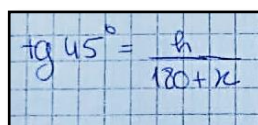 tg 45° = h / (180 + x)